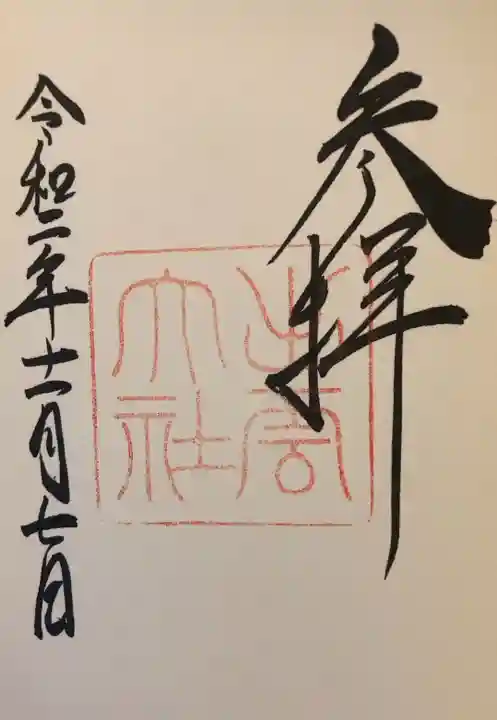 参拝
出雲
大社
令和二年十一月七日